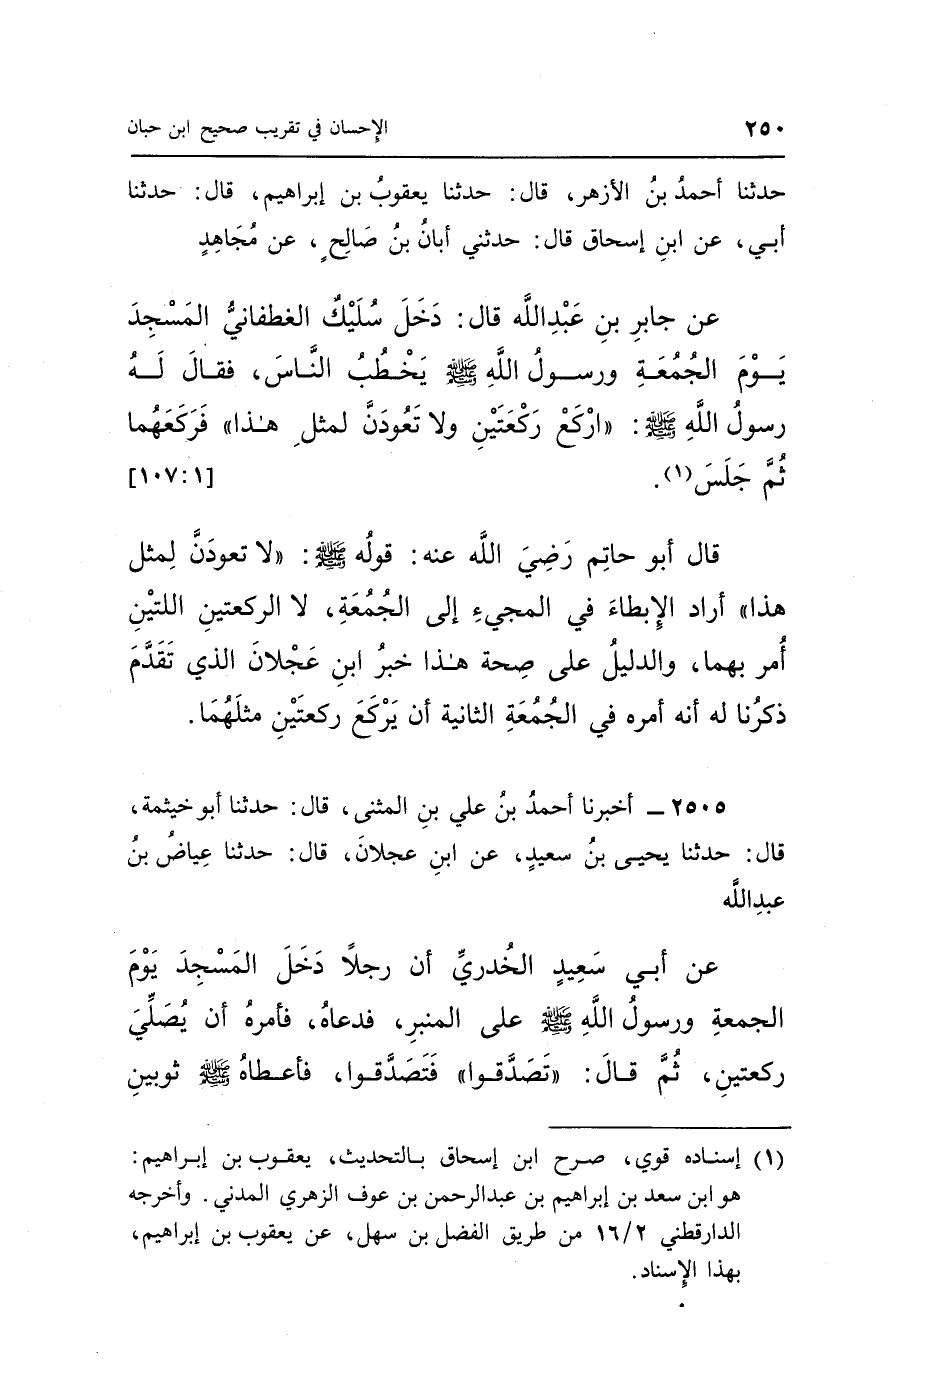 ٢٥٠ الإحسان في تقريب صحيح ابن حبان
حدثنا أحمدُ بنُ الأزهر، قال: حدثنا يعقوبُ بن إبراهيم، قال: حدثنا
أبي، عن ابنِ إسحاق قال: حدثني أبانُ بنُ صَالِحٍ، عن مُجَاهِدٍ
عن جابرِ بنِ عَبْدِاللَّه قال: دَخَلَ سُلَيْكٌ الغطفانيُّ المَسْجِدَ
يَوْمَ الجُمُعَةِ ورسولُ اللَّهِ ﷺ يَخْطُبُ النَّاسَ، فقالَ لَهُ
رسولُ اللَّهِ ﷺ: «ارْكَعْ رَكْعَتَيْنِ ولا تَعُودَنَّ لمثلِ هـٰذا» فَرَكَعَهُما
ثُمَّ جَلَسَ(١). [١٠٧:١]
قال أبو حاتِم رَضِيَ اللَّه عنه: قولُه ﷺ: «لا تعودَنَّ لِمثل
هذا» أراد الإِبطاءَ في المجيءِ إلى الجُمُعَةِ، لا الركعتينِ اللتيْنِ
أُمر بهما، والدليلُ على صِحة هـٰذا خبرُ ابنِ عَجْلانَ الذي تَقَدَّمَ
ذكرُنا له أنه أمره في الجُمُعَةِ الثانية أن يَرْكَعَ ركعتَيْنِ مثلَهُمَا.
٢٥٠٥ ـ أخبرنا أحمدُ بنُ علي بنِ المثنى، قال: حدثنا أبو خيثمة،
قال: حدثنا يحيى بنُ سعيدٍ، عن ابنِ عجلانَ، قال: حدثنا عِياضُ بنُ
عبدِاللَّه
عن أبي سَعِيدٍ الخُدريِّ أن رجلاً دَخَلَ المَسْجِدَ يَوْمَ
الجمعةِ ورسولُ اللَّهِ ﷺ على المنبرِ، فدعاهُ، فأمرهُ أن يُصَلِّيَ
ركعتينِ، ثُمَّ قالَ: «تَصَدَّقوا» فَتَصَدَّقوا، فأعطاهُ ﷺ ثوبينِ
(١) إسناده قوي، صرح ابن إسحاق بالتحديث، يعقوب بن إبراهيم:
هو ابن سعد بن إبراهيم بن عبدالرحمن بن عوف الزهري المدني. وأخرجه
الدارقطني ١٦/٢ من طريق الفضل بن سهل، عن يعقوب بن إبراهيم،
بهذا الإِسناد.